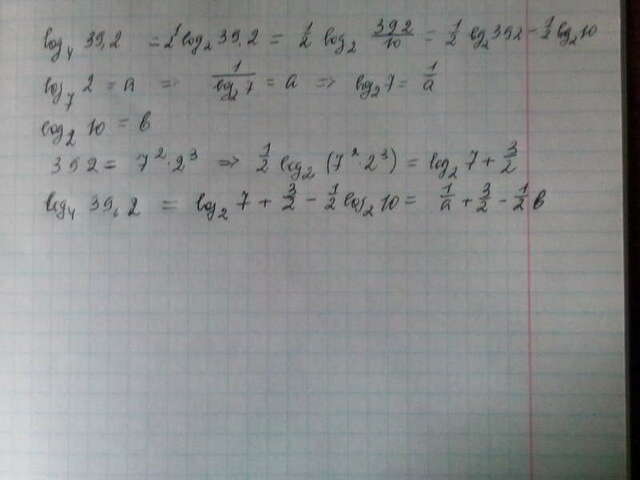 log₄ 39,2 = 2¹ log₂ 39,2 = 1/2 log₂ 392/10 = 1/2 log₂ 392 - 1/2 log₂ 10
log₇ 2 = a => 1/log₂ 7 = a => log₂ 7 = 1/a
log₂ 10 = в
392 = 7² · 2³ => 1/2 log₂ (7² · 2³) = log₂ 7 + 3/2
log₄ 39,2 = log₂ 7 + 3/2 - 1/2 log₂ 10 = 1/a + 3/2 - 1/2 в